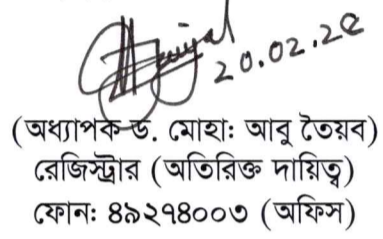 20.02.2৫
(অধ্যাপক ড. মোহাঃ আবু তৈয়ব)
রেজিস্ট্রার (অতিরিক্ত দায়িত্ব)
ফোনঃ ৪৯২৭৪০০৩ (অফিস)